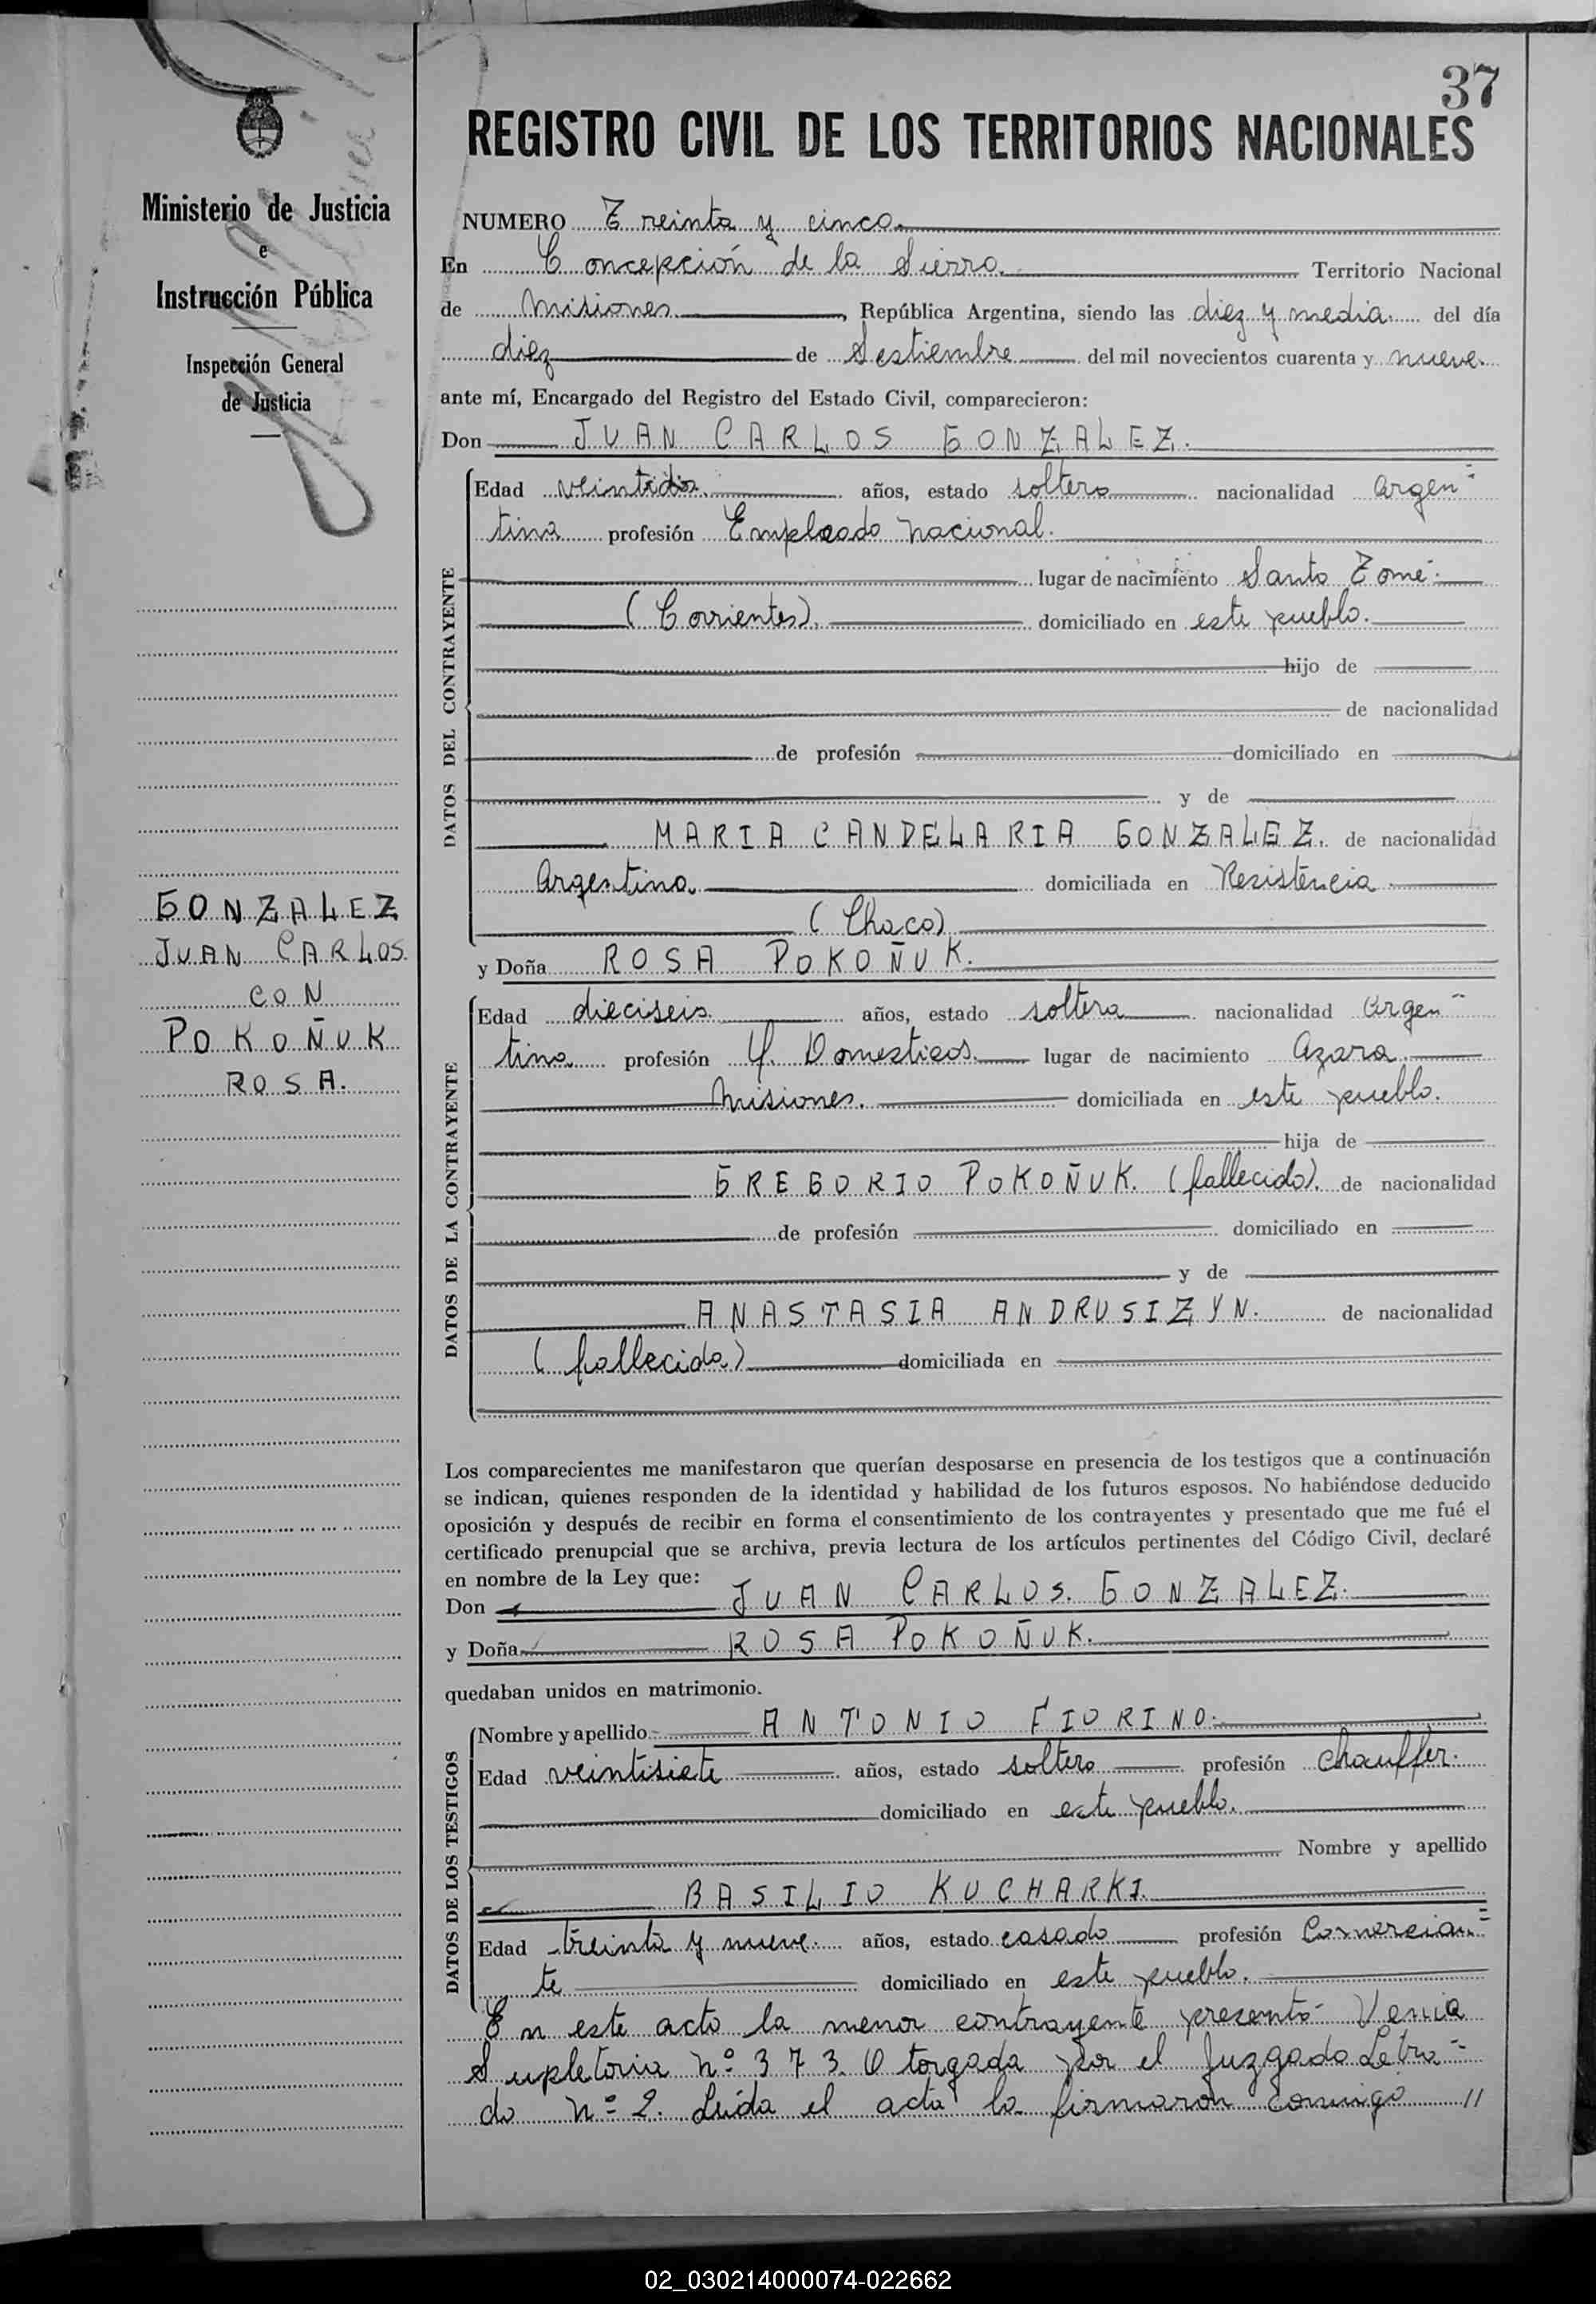 37
REGISTRO CIVIL DE LOS TERRITORIOS NACIONALES
Ministerio de Justicia
e
Instrucción Pública
Inspección General
de Justicia
GONZALEZ
JUAN CARLOS
CON
POKOÑUK
ROSA.
NUMERO Treinta y cinco.
En Concepción de la Sierra. Territorio Nacional
de Misiones, República Argentina, siendo las diez y media. del día
diez de Sestiembre del mil novecientos cuarenta y nueve.
ante mí, Encargado del Registro del Estado Civil, comparecieron:
Don JUAN CARLOS GONZALEZ.
DATOS DEL CONTRAYENTE
Edad veintidos. años, estado soltero nacionalidad argen=
tina profesión Empleado Nacional.
lugar de nacimiento Santo Tomé.
(Corrientes). domiciliado en este pueblo.
hijo de
de nacionalidad
de profesión domiciliado en
y de
MARIA CANDELARIA GONZALEZ. de nacionalidad
Argentina domiciliada en Resistencia
(Chaco)
y Doña ROSA POKOÑUK.
DATOS DE LA CONTRAYENTE
Edad dieciseis. años, estado soltera nacionalidad argen=
tina profesión Q. Domesticos. lugar de nacimiento Azara.
Misiones. domiciliada en este pueblo.
hija de
GREGORIO POKOÑUK. (fallecido). de nacionalidad
de profesión domiciliado en
y de
ANASTASIA ANDRUSIZYN. de nacionalidad
(fallecida) domiciliada en
Los comparecientes me manifestaron que querían desposarse en presencia de los testigos que a continuación
se indican, quienes responden de la identidad y habilidad de los futuros esposos. No habiéndose deducido
oposición y después de recibir en forma el consentimiento de los contrayentes y presentado que me fué el
certificado prenupcial que se archiva, previa lectura de los artículos pertinentes del Código Civil, declaré
en nombre de la Ley que:
Don JUAN CARLOS. GONZALEZ.
y Doña ROSA POKOÑUK.
quedaban unidos en matrimonio.
DATOS DE LOS TESTIGOS
Nombre y apellido ANTONIO FIORINO.
Edad veintisiete años, estado soltero profesión chauffer.
domiciliado en este pueblo.
Nombre y apellido
BASILIO KUCHARKI.
Edad treinta y nueve. años, estado casado profesión Comercian=
te domiciliado en este pueblo.
En este acto la menor contrayente presentó Venia
Supletoria Nº 373. Otorgada por el Juzgado Letra=
do Nº 2. Leída el acta la firmaron conmigo //
02_030214000074-022662